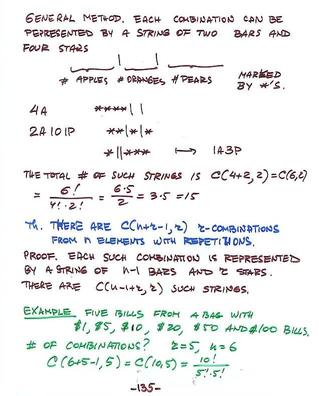 GENERAL METHOD. EACH COMBINATION CAN BE
REPRESENTED BY A STRING OF TWO BARS AND
FOUR STARS
# APPLES # ORANGES # PEARS MARKED
BY *'S.
4A ****||
2A 1O 1P **|*|*
*||*** ↦ 1A3P
THE TOTAL # OF SUCH STRINGS IS C(4+2,2)=C(6,2)
= 6!/4!·2! = 6·5/2 = 3·5 = 15
Th. THERE ARE C(n+r-1,r) r-COMBINATIONS
FROM n ELEMENTS WITH REPETITIONS.
PROOF. EACH SUCH COMBINATION IS REPRESENTED
BY A STRING OF n-1 BARS AND r STARS.
THERE ARE C(n-1+r,r) SUCH STRINGS.
EXAMPLE FIVE BILLS FROM A BAG WITH
$1, $5, $10, $20, $50 AND $100 BILLS.
# OF COMBINATIONS? r=5, n=6
C(6+5-1,5) = C(10,5) = 10!/5!·5!
-135-